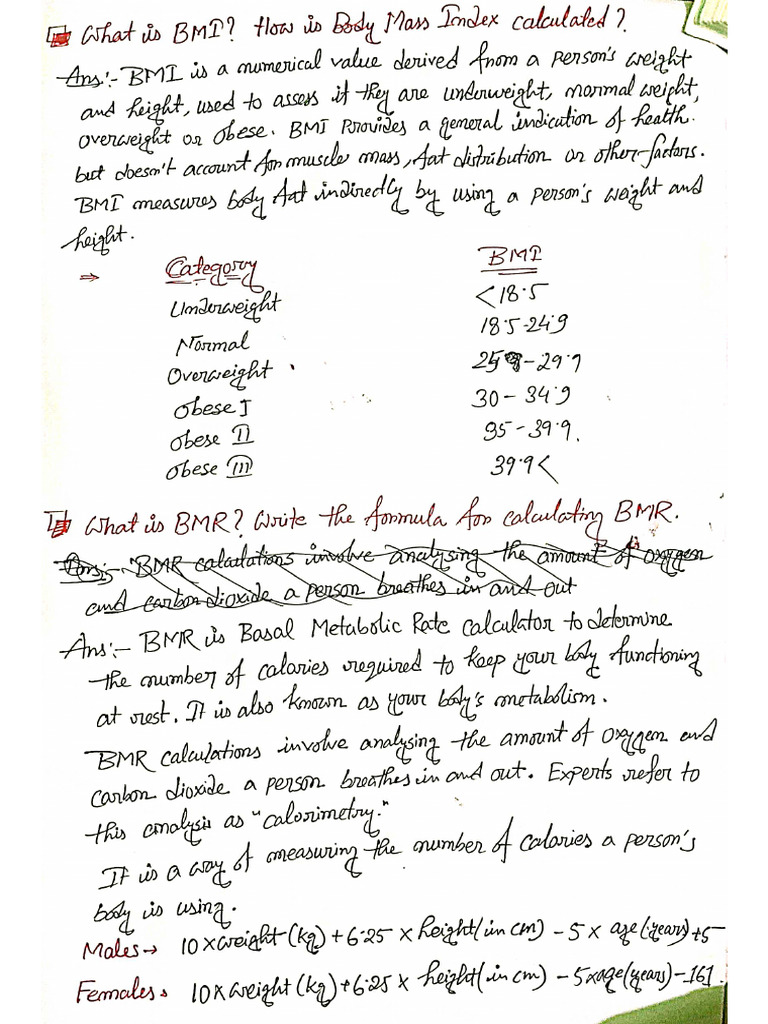 What is BMI? How is Body Mass Index calculated?
Ans:- BMI is a numerical value derived from a person's weight
and height, used to assess if they are underweight, normal weight,
overweight or obese. BMI Provides a general indication of health.
but doesn't account for muscle mass, fat distribution or other factors.
BMI measures body fat indirectly by using a person's weight and
height.
⇒ Category BMI
Underweight <18.5
Normal 18.5-24.9
Overweight 25-29.9
Obese I 30-34.9
Obese II 35-39.9.
Obese III 39.9<
What is BMR? Write the formula for calculating BMR.
Ans:- BMR calculations involve analysing the amount of oxygen
and carbon dioxide a person breathes in and out
Ans:- BMR is Basal Metabolic Rate calculator to determine
the number of calories required to keep your body functioning
at rest. It is also known as your body's metabolism.
BMR calculations involve analysing the amount of oxygen and
carbon dioxide a person breathes in and out. Experts refer to
this analysis as "calorimetry."
It is a way of measuring the number of calories a person's
body is using.
Males → 10×weight(kg)+6.25×height(in cm) -5× age(years)+5
Females → 10×weight(kg)+6.25×height(in cm) -5×age(years)-161.